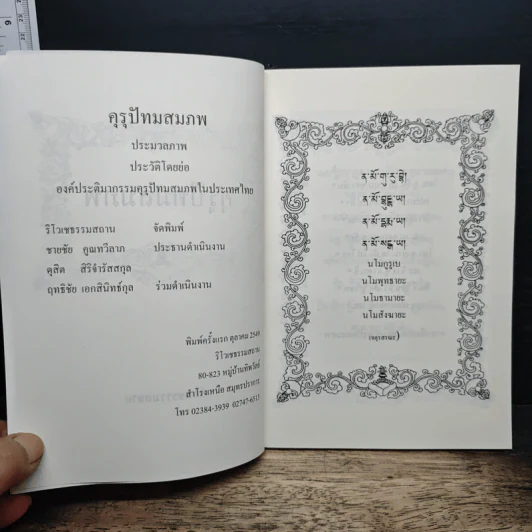 คุรุปัทมสมภพ
ประมวลภาพ
ประวัติโดยย่อ
องค์ประติมากรรมคุรุปัทมสมภพในประเทศไทย
ริโวเชธรรมสถาน จัดพิมพ์
ชายชัย คูณทวีลาภ ประธานดำเนินงาน
ดุสิต สิริจำรัสสกุล
ฤทธิชัย เอกสินิทธ์กุล ร่วมดำเนินงาน
พิมพ์ครั้งแรก ตุลาคม 2549
ริโวเชธรรมสถาน
80-823 หมู่บ้านทิพวัลย์
สำโรงเหนือ สมุทรปราการ
โทร 02384-3939 02747-6313
ན་མོ་གུ་རུ་བྷེ།
ན་མོ་བུདྡྷ་ཡ།
ན་མོ་དྷརྨ་ཡ།
ན་མོ་སངྒྷ་ཡ།
นโมกูรูเบ
นโมพุทธายะ
นโมธามายะ
นโมสังฆายะ
(จตุรสรณะ)